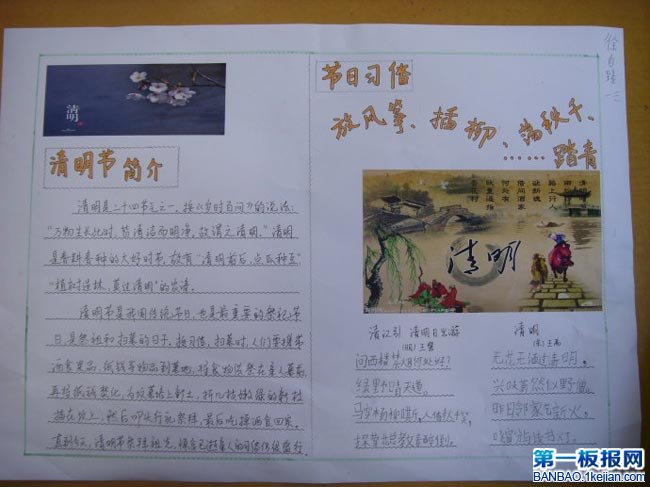 清明
清明节 简介
清明是二十四节气之一，按《岁时百问》的说法：
"万物生长此时，皆清洁而明净，故谓之清明。"清明
是春耕春种的大好时节，故有"清明前后，点瓜种豆"
"植树造林，莫过清明"的农谚。
清明节是我国传统节日，也是最重要的祭祀节
日，是祭祖和扫墓的日子。按习俗，扫墓时，人们要携带
酒食果品、纸钱等物品到墓地，将食物供祭在亲人墓前，
再将纸钱焚化，为坟墓培上新土，折几枝嫩绿的新枝
插在坟上，然后叩头行礼祭拜，最后吃掉酒食回家。
直到今天，清明节祭拜祖先，悼念已逝亲人的习俗仍很盛行。
节日习俗
放风筝、插柳、荡秋千、
……踏青
路上行人
欲断魂
借问酒家
何处有
牧童遥指
杏花村
清明
清江引 清明日出游
(明)王磐
问西楼禁烟何处好？
绿野晴天道。
马穿杨柳嘶，人倚秋千笑，
探莺花总教春醉倒。
清明
(宋)王禹
无花无酒过清明，
兴味萧然似野僧。
昨日邻家乞新火，
晓窗分与读书灯。
第一板报网
BANBAO.1kejian.com